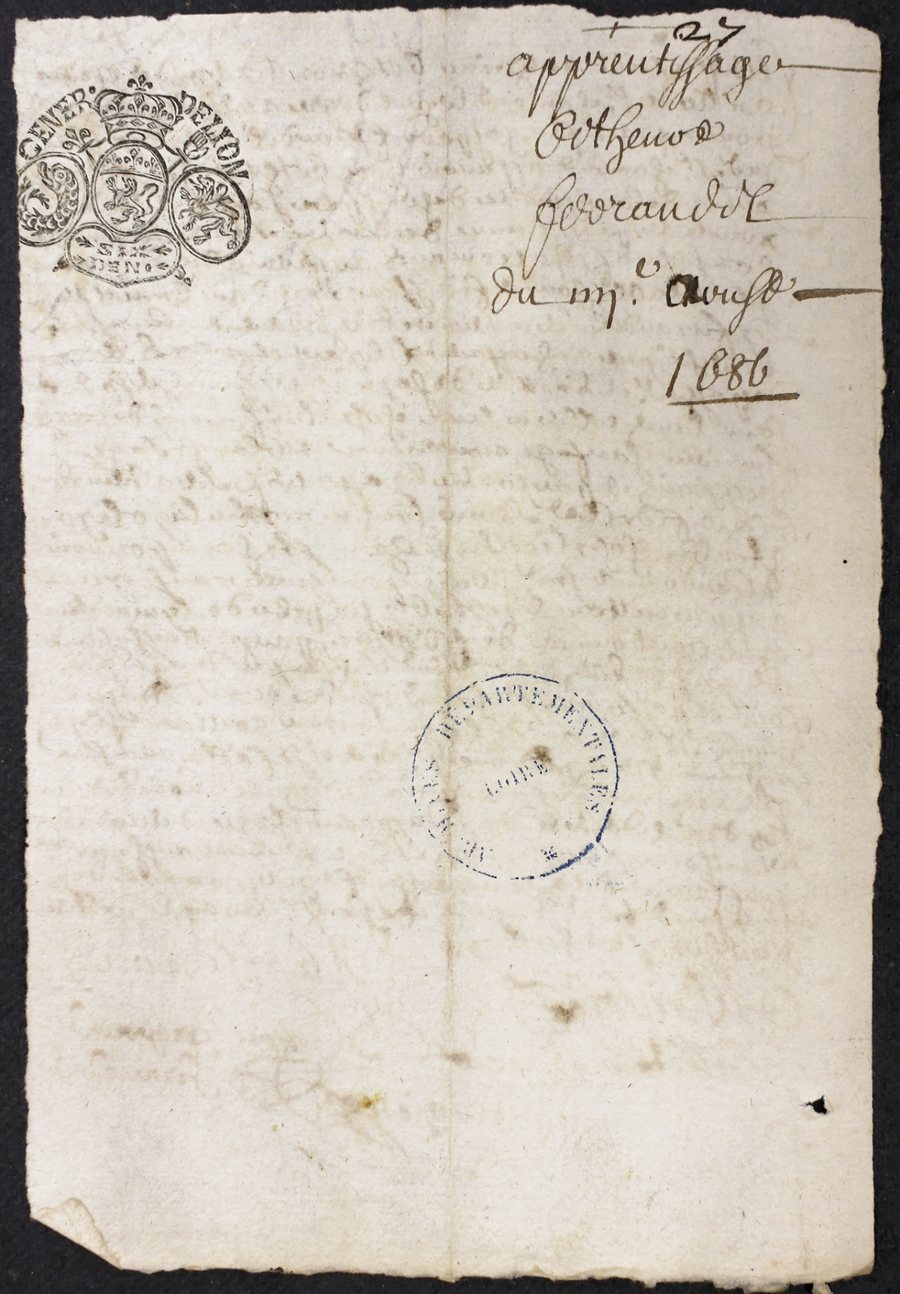 GENER. DE LYON
SIX
DEN.
27
apprentissage
Bethenod
fferrandil
du mp.e Aoust
1686
ARCHIVES DEPARTEMENTALES
LOIRE